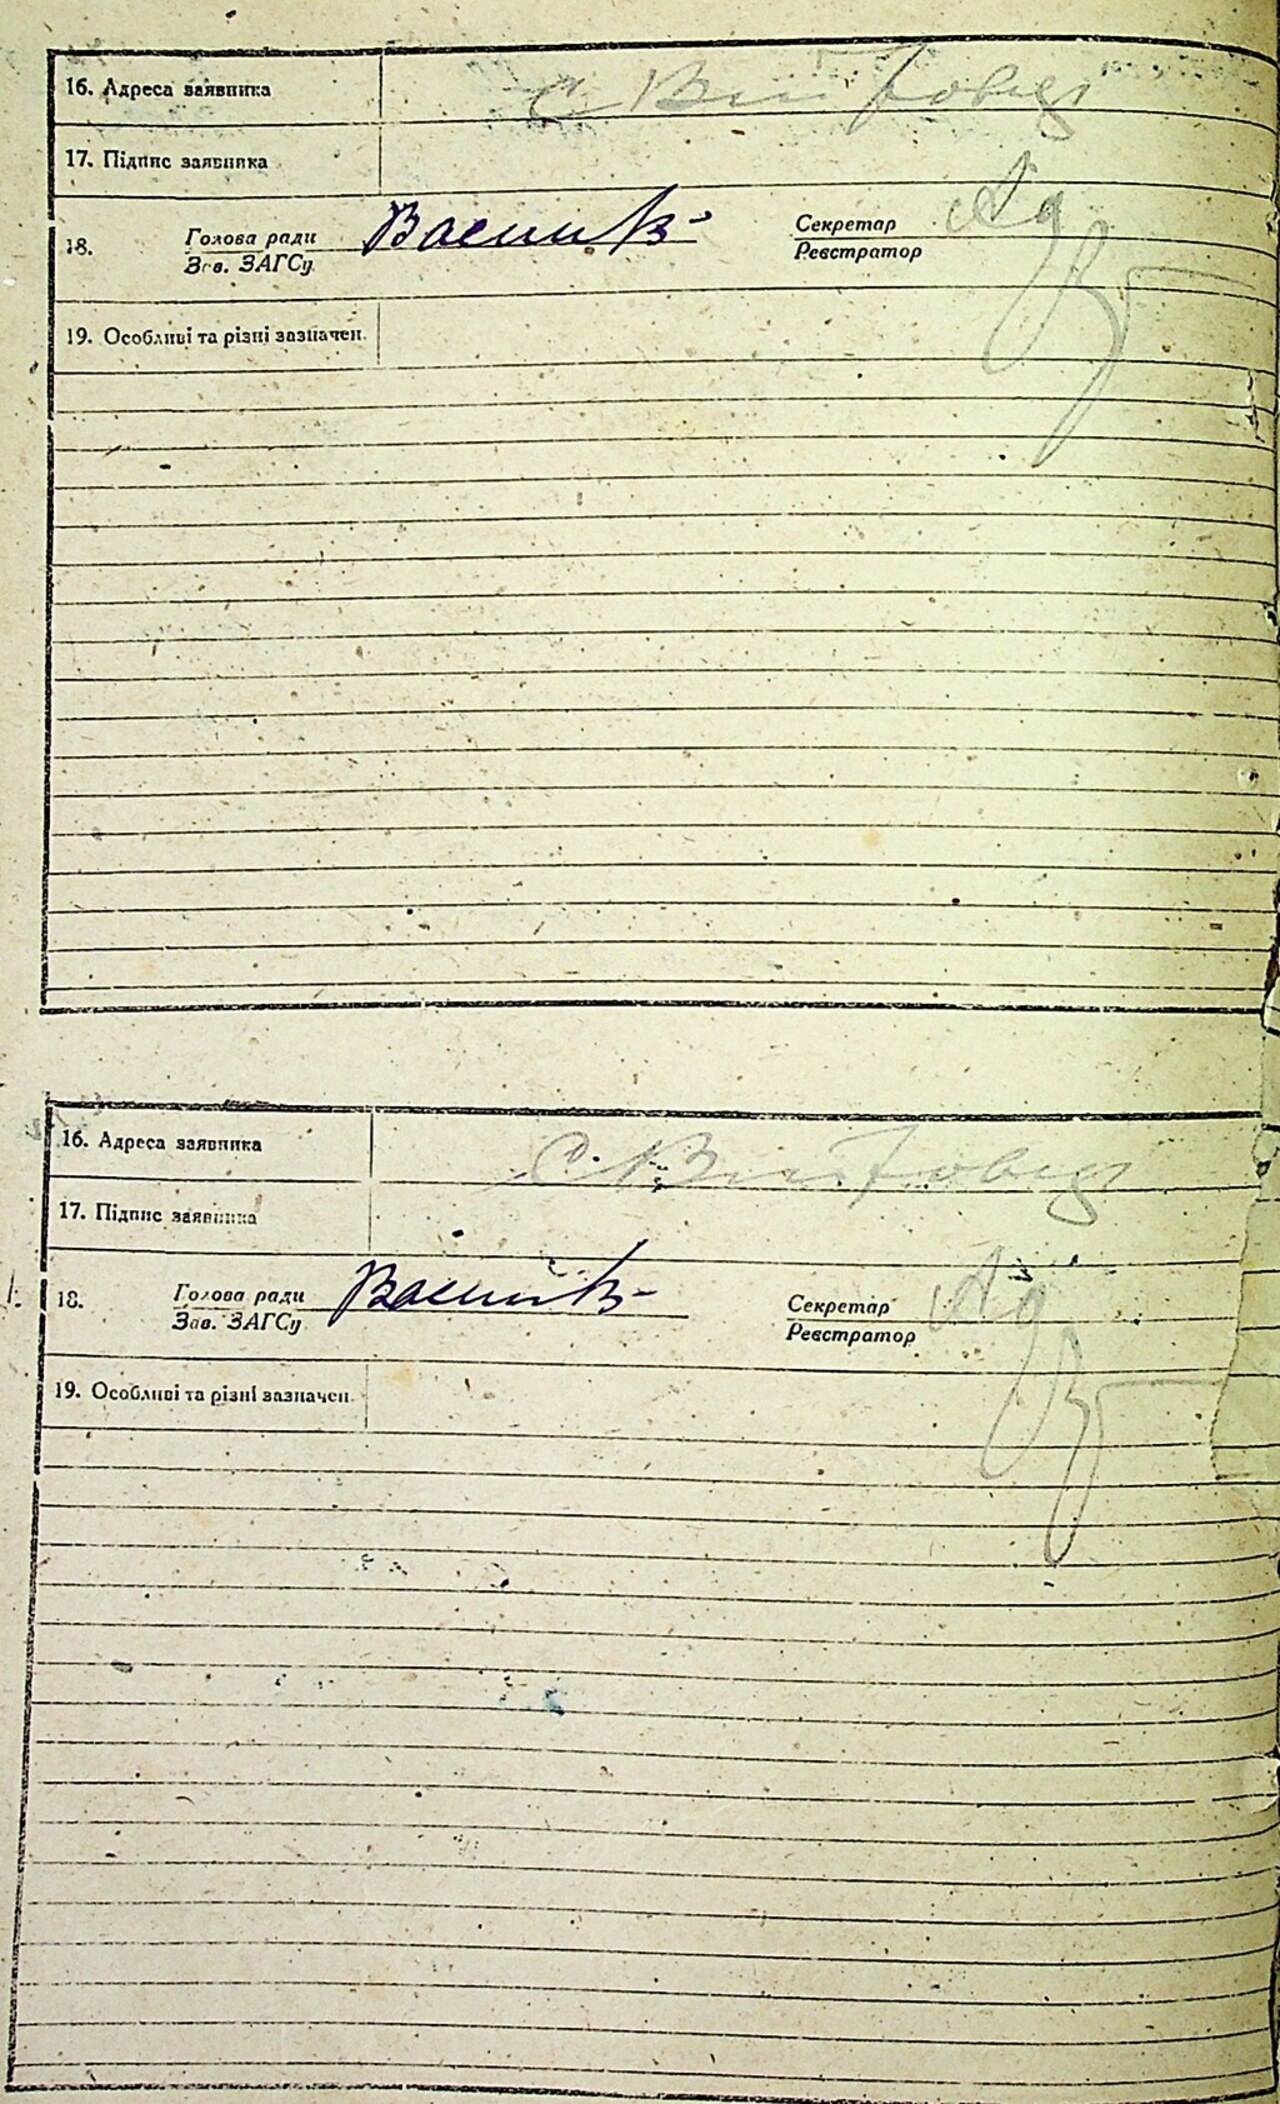 16. Адреса заявника с Війтовці
17. Підпис заявника
18. Голова ради Секретар
Зав. ЗАГСу Реєстратор
19. Особливі та різні зазначен.
16. Адреса заявника с. Війтовці
17. Підпис заявника
18. Голова ради Секретар
Зав. ЗАГСу Реєстратор
19. Особливі та різні зазначен.